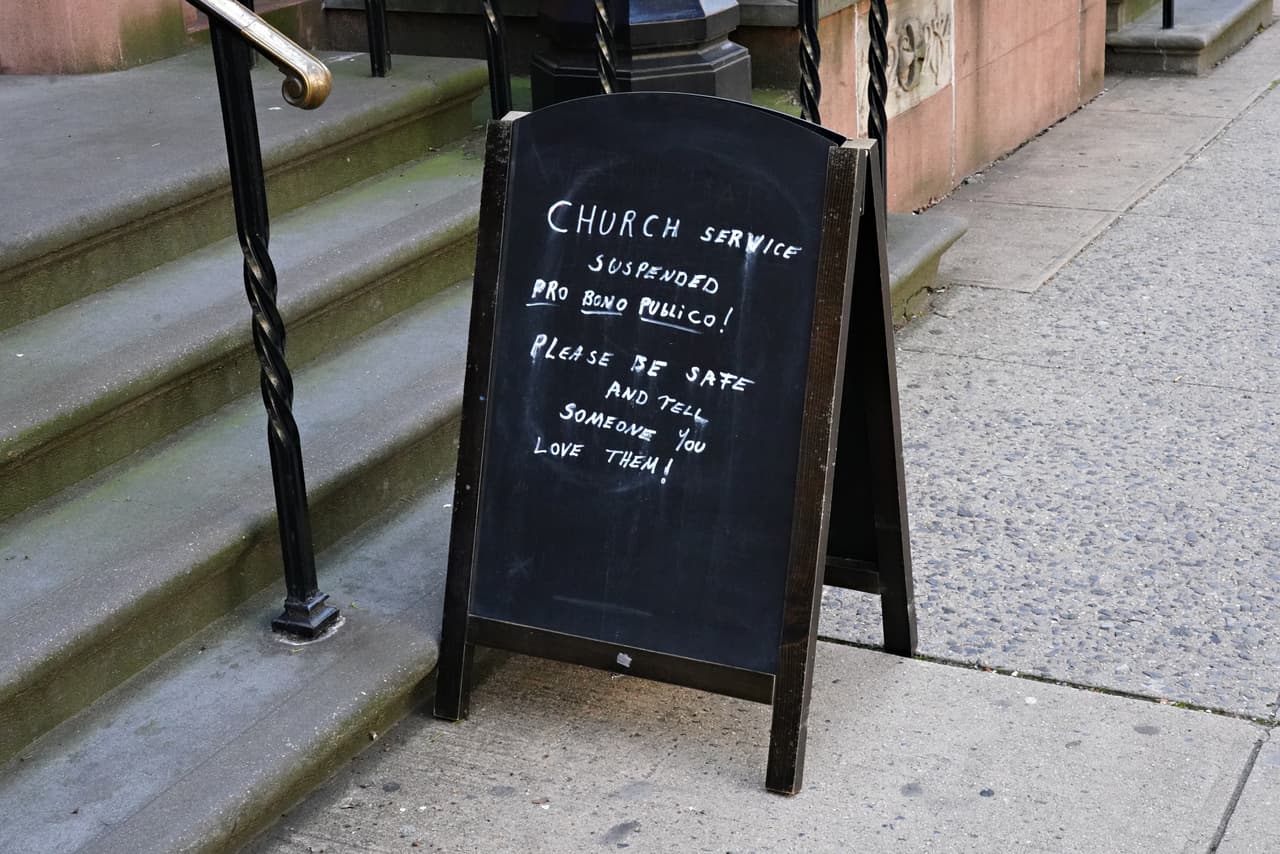 CHURCH SERVICE
SUSPENDED
PRO BONO PUBLICO!
PLEASE BE SAFE
AND TELL
SOMEONE YOU
LOVE THEM!